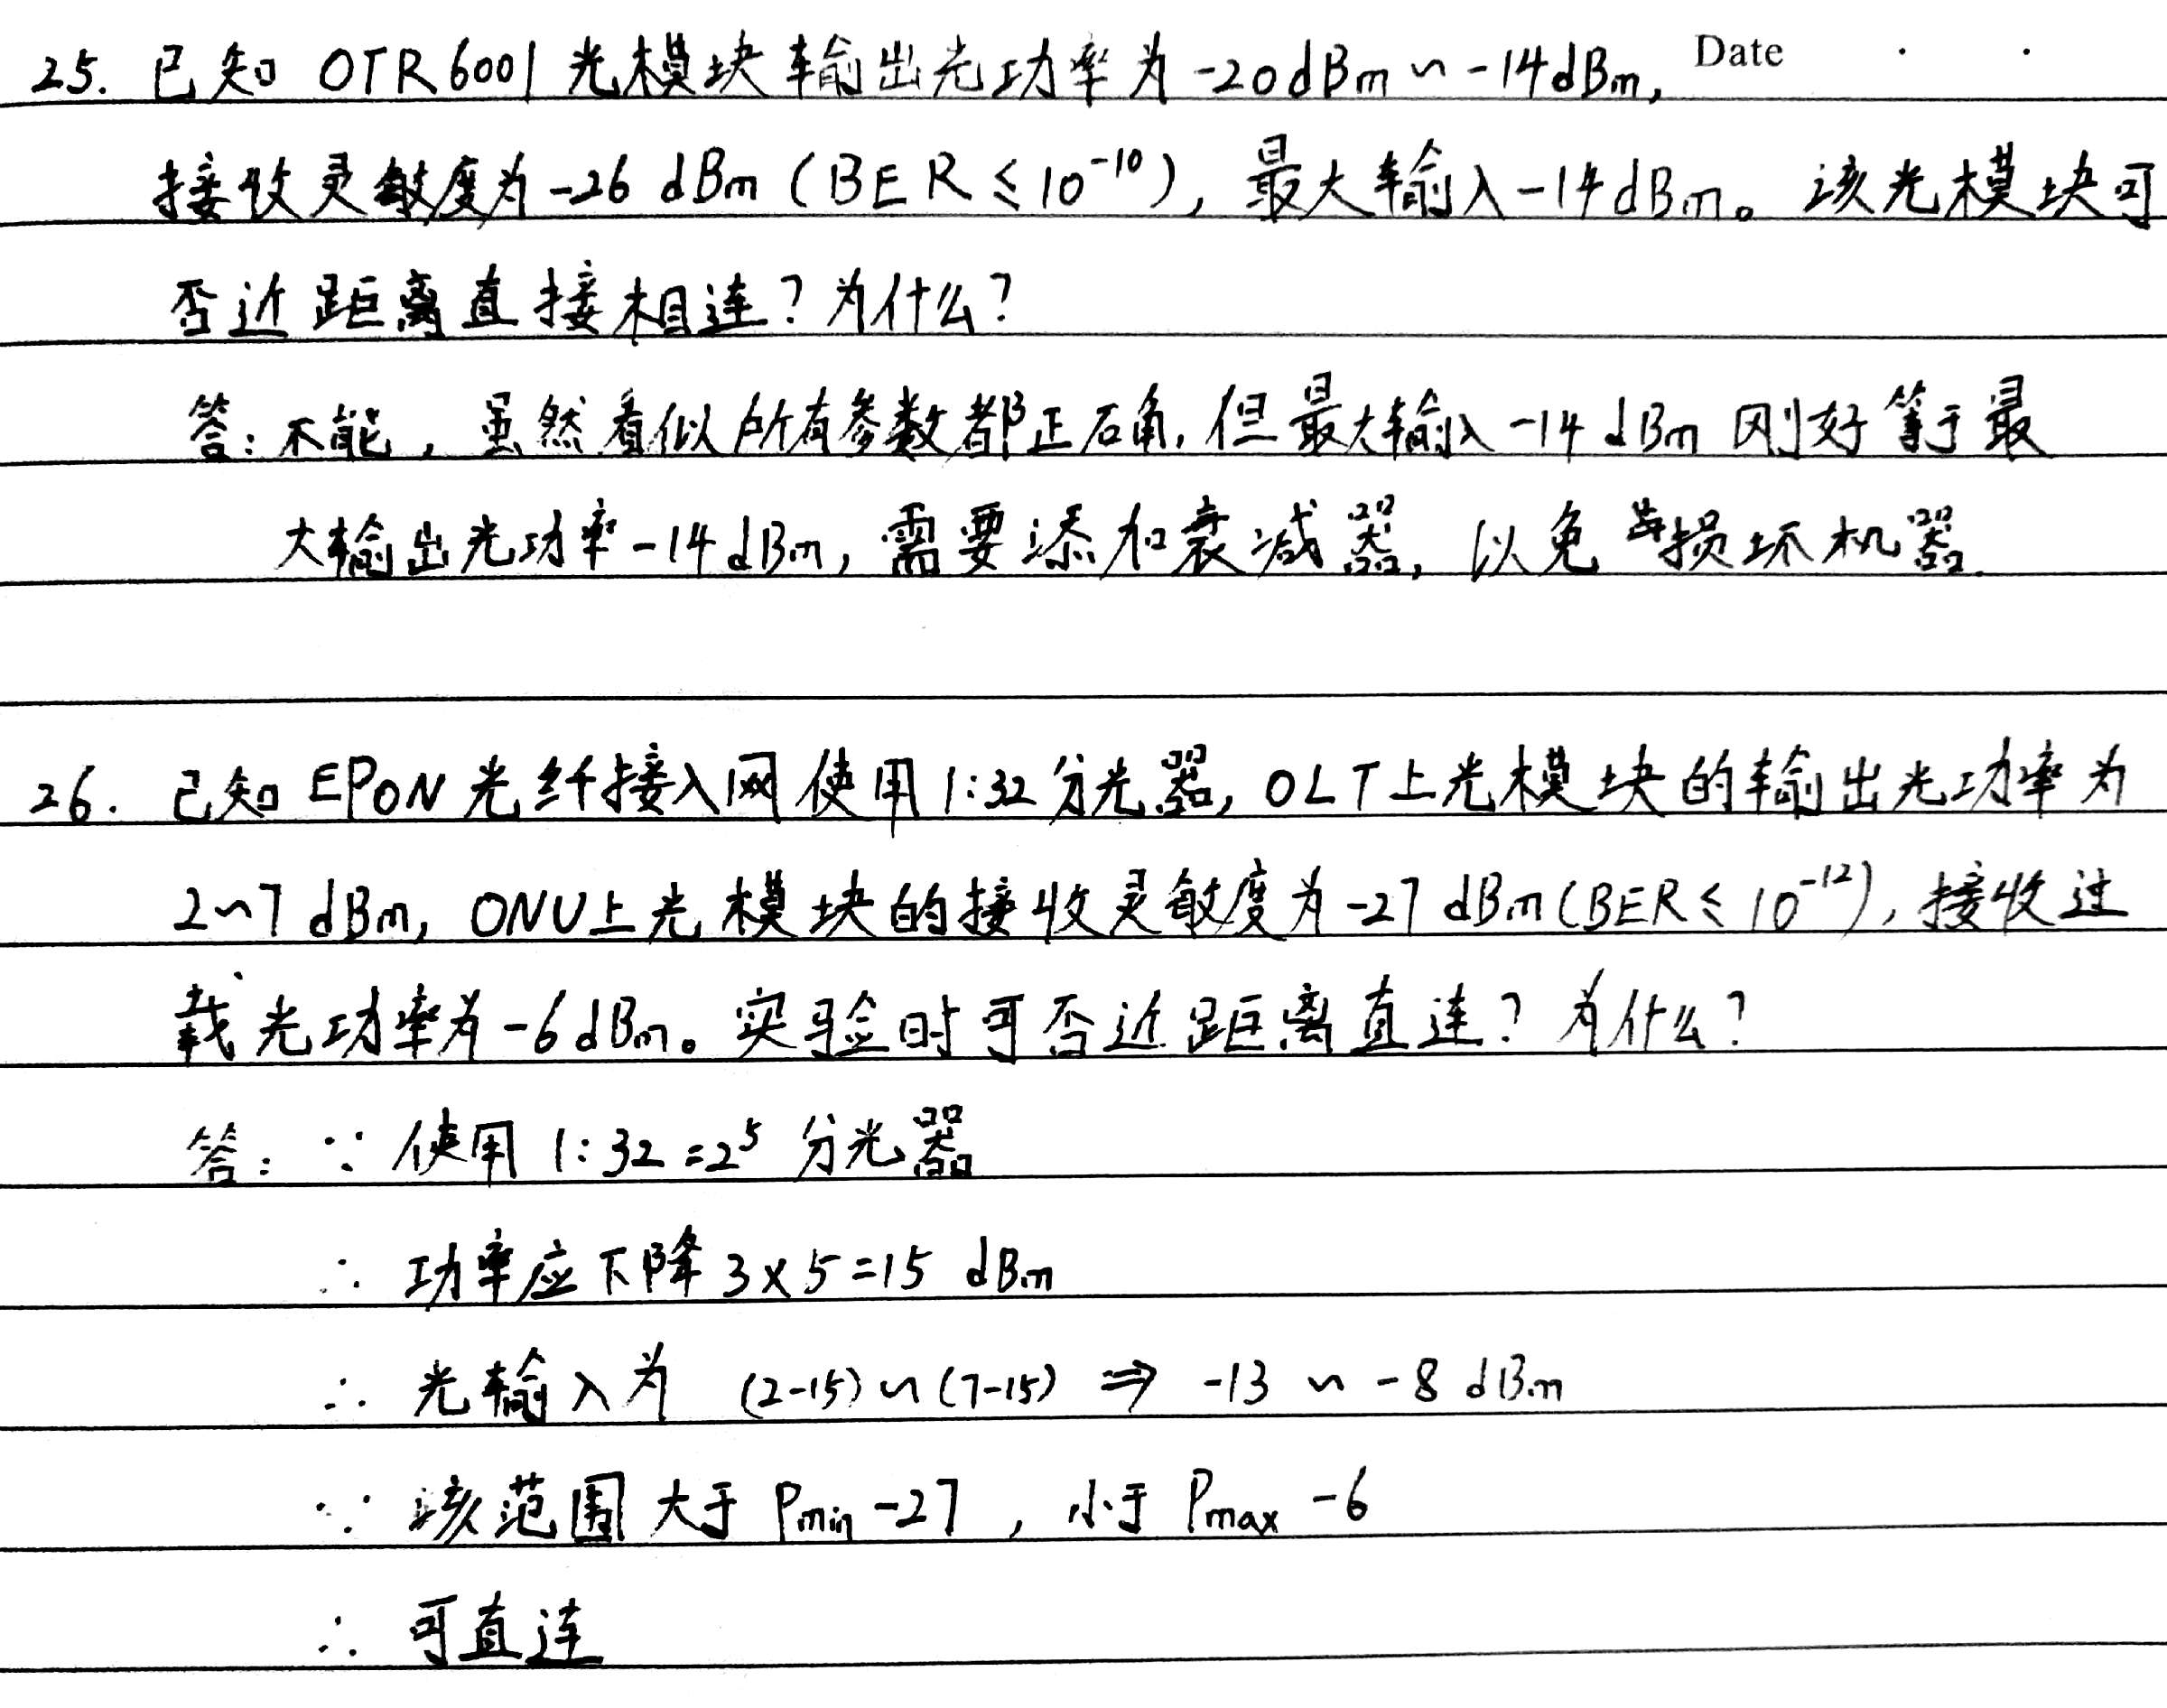 Date
25. 已知 OTR6001光模块输出光功率为-20dBm~-14dBm,
接收灵敏度为-26 dBm (BER≤10⁻¹⁰), 最大输入-14dBm。该光模块可
否近距离直接相连?为什么?
答:不能,虽然看似所有参数都正确,但最大输入-14 dBm 刚好等于最
大输出光功率-14dBm, 需要添加衰减器, 以免损坏机器.
26. 已知 EPON光纤接入网使用1:32分光器, OLT上光模块的输出光功率为
2~7 dBm, ONU上光模块的接收灵敏度为-27 dBm(BER≤10⁻¹²), 接收过
载光功率为-6dBm。实验时可否近距离直连?为什么?
答: ∵ 使用 1:32=2⁵ 分光器
∴ 功率应下降 3×5=15 dBm
∴ 光输入为 (2-15)~(7-15) ⇒ -13 ~ -8 dBm
∵ 该范围大于 Pmin -27 , 小于 Pmax -6
∴ 可直连